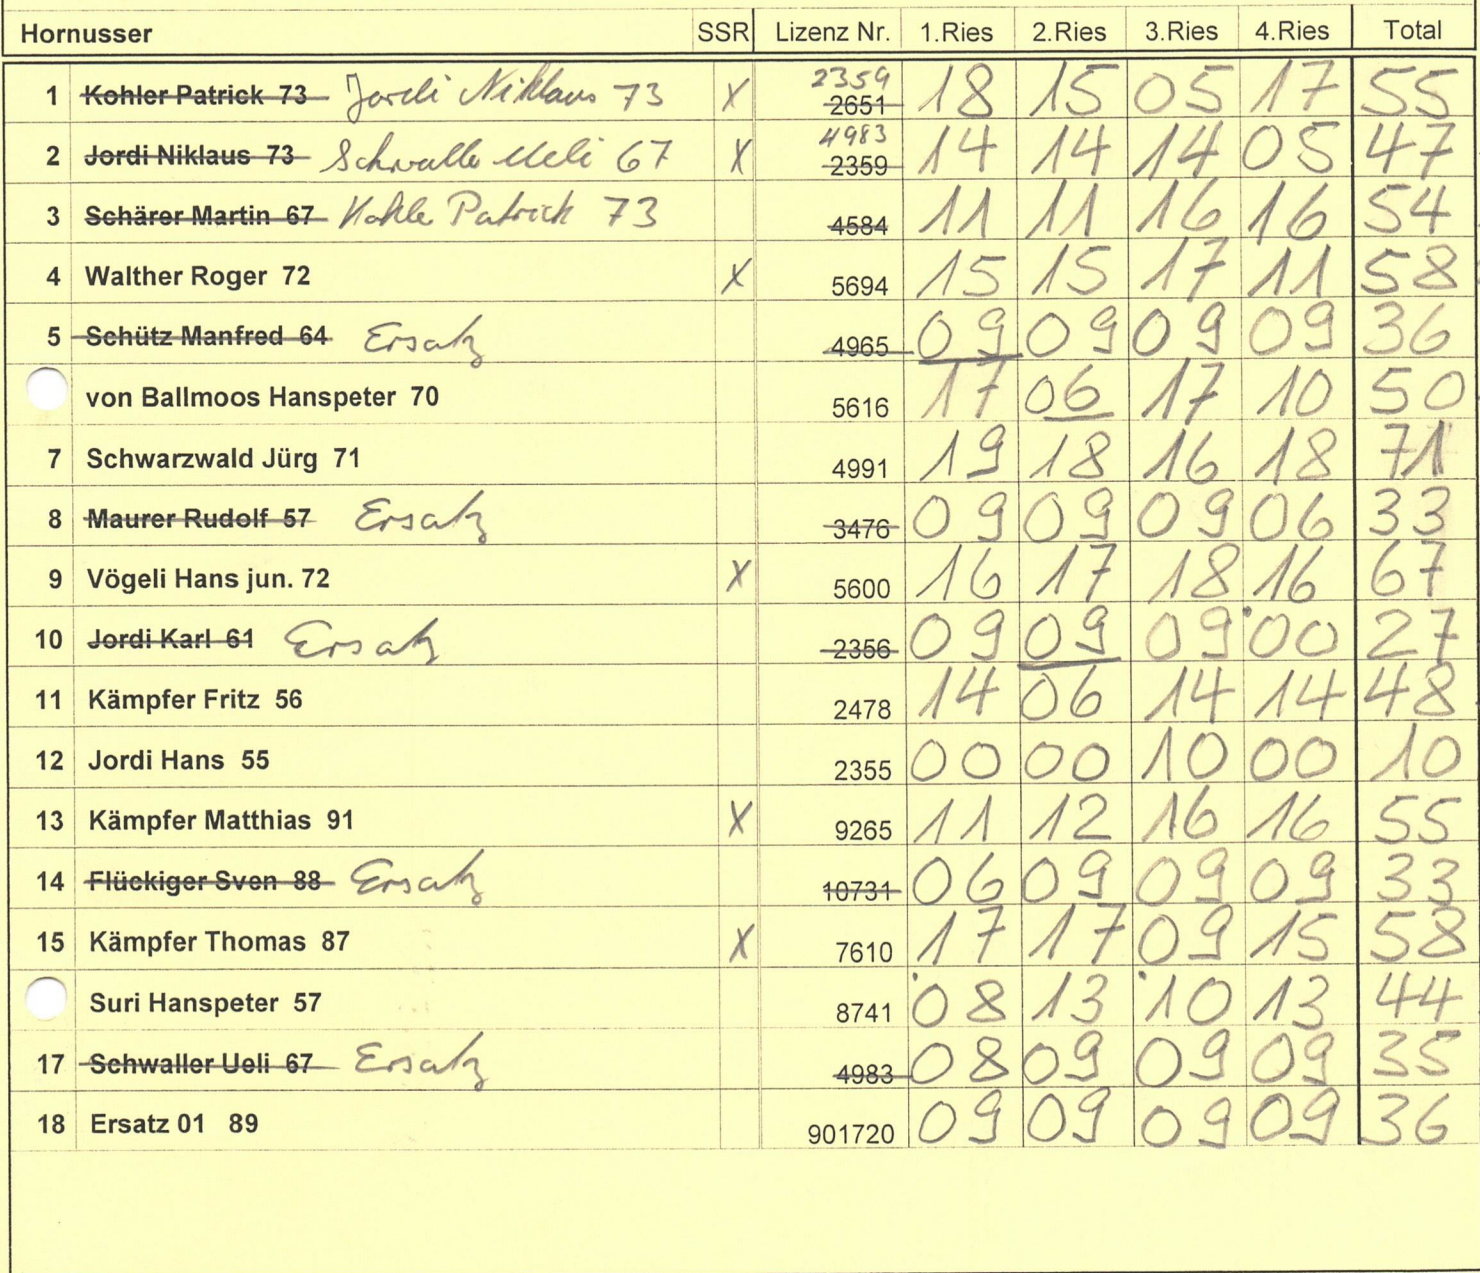 Hornusser SSR Lizenz Nr. 1.Ries 2.Ries 3.Ries 4.Ries Total
1 Kohler Patrick 73 Jordi Niklaus 73 X 2359 2651 18 15 05 17 55
2 Jordi Niklaus 73 Schwalle Ueli 67 X 4983 2359 14 14 14 05 47
3 Schärer Martin 67 Kohle Patrick 73 4584 11 11 16 16 54
4 Walther Roger 72 X 5694 15 15 17 11 58
5 Schütz Manfred 64 Ersatz 4965 09 09 09 09 36
von Ballmoos Hanspeter 70 5616 17 06 17 10 50
7 Schwarzwald Jürg 71 4991 19 18 16 18 71
8 Maurer Rudolf 57 Ersatz 3476 09 09 09 06 33
9 Vögeli Hans jun. 72 X 5600 16 17 18 16 67
10 Jordi Karl 61 Ersatz 2356 09 09 09 00 27
11 Kämpfer Fritz 56 2478 14 06 14 14 48
12 Jordi Hans 55 2355 00 00 10 00 10
13 Kämpfer Matthias 91 X 9265 11 12 16 16 55
14 Flückiger Sven 88 Ersatz 10731 06 09 09 09 33
15 Kämpfer Thomas 87 X 7610 17 17 09 15 58
Suri Hanspeter 57 8741 08 13 10 13 44
17 Schwaller Ueli 67 Ersatz 4983 08 09 09 09 35
18 Ersatz 01 89 901720 09 09 09 09 36